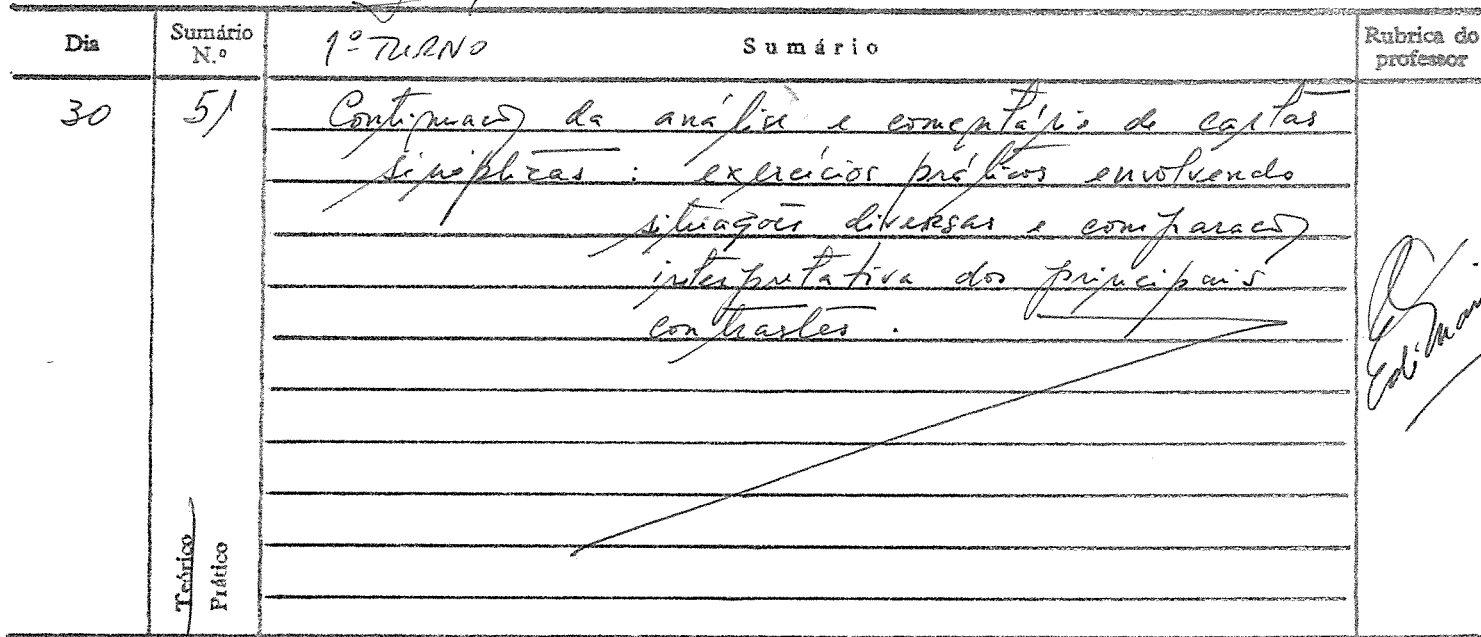 Dia
Sumário N.º
1º TURNO
Sumário
Rubrica do professor
30
51
Continuação da análise e comentário de cartas
sinópticas : exercícios práticos envolvendo
situações diversas e comparação
interpretativa dos principais
contrastes.
Teórico
Prático